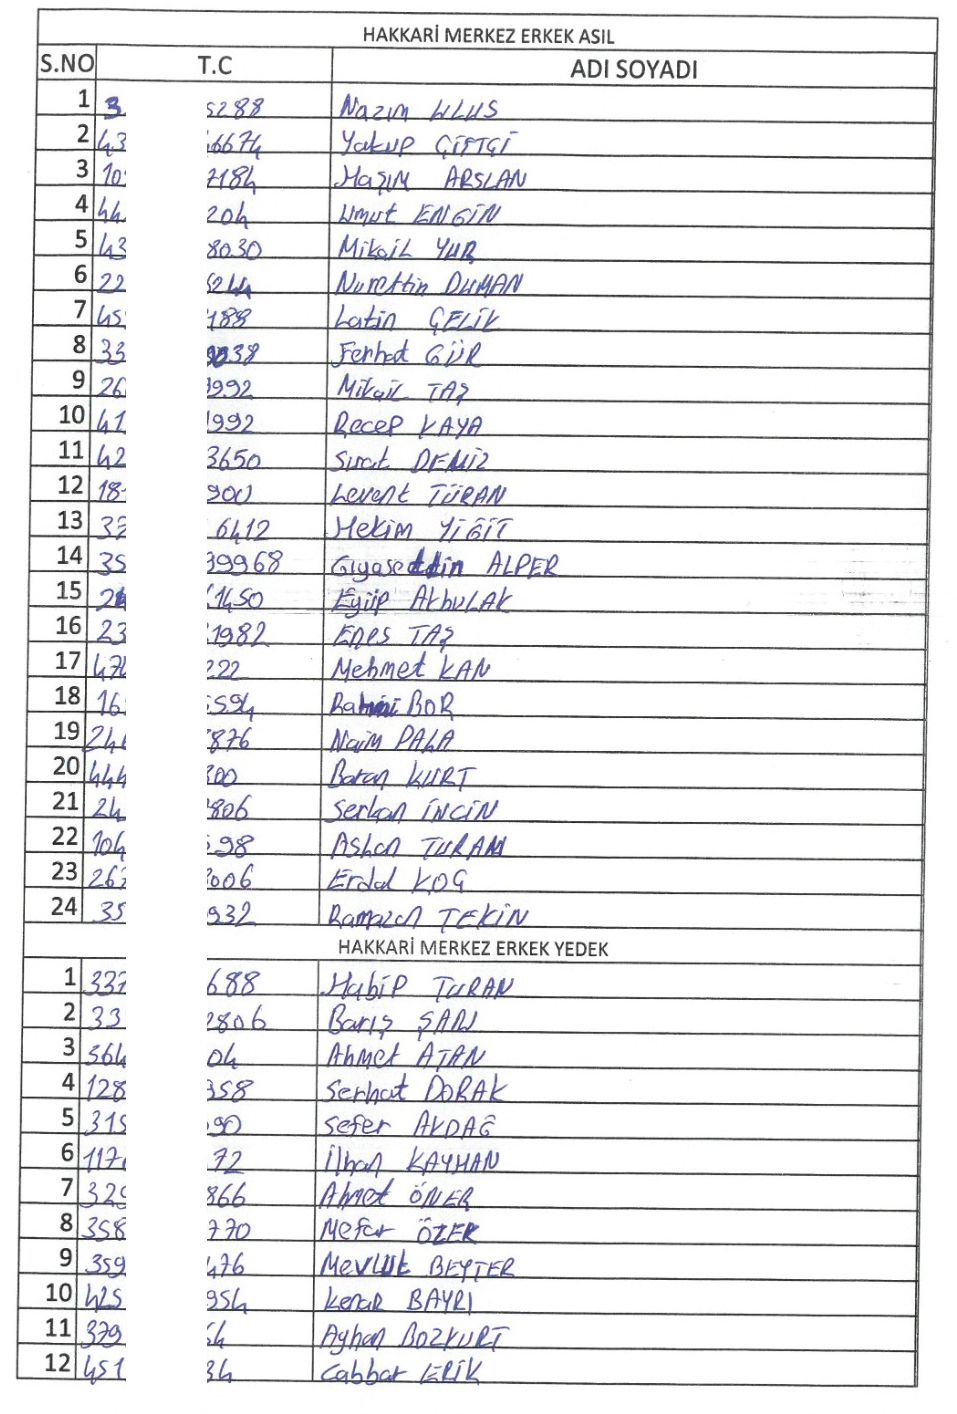 HAKKARİ MERKEZ ERKEK ASIL
S.NO T.C ADI SOYADI
1 3 5288 Nazım ULUS
2 43 6674 Yakup ÇİFTÇİ
3 10 7184 Haşım ARSLAN
4 44 204 Umut ENGİN
5 43 8030 Mikail YUR
6 22 5244 Nurettin DUMAN
7 45 188 Latin ÇELİK
8 33 9038 Ferhat GÜR
9 26 1992 Mikail TAŞ
10 41 1992 Recep KAYA
11 42 3650 Sırat DEMİZ
12 18 900 Levent TÜRAN
13 37 6412 Hekim YİĞİT
14 35 39968 Gıyaseddin ALPER
15 1450 Eyüp Akbulak
16 23 1982 Enes TAŞ
17 47 222 Mehmet KAN
18 16 594 BOR
19 24 876 Naim PALA
20 444 300 Baran KURT
21 24 806 Serkan İNCİN
22 104 98 Aslan TURAN
23 267 006 Erdal KOÇ
24 35 932 Ramazan TEKİN
HAKKARİ MERKEZ ERKEK YEDEK
1 337 688 Habip TURAN
2 33 2806 Barış ŞARI
3 564 04 Ahmet ATAN
4 128 358 Serhat DORAK
5 315 90 Sefer AKDAĞ
6 117 72 İlhan KAYHAN
7 325 866 Ahmet ÖNER
8 358 770 Mefar ÖZER
9 359 476 Mevlüt BEYTER
10 425 954 Kenar BAYRI
11 379 4 Ayhan BOZKURT
12 451 34 Cabbar ERİK